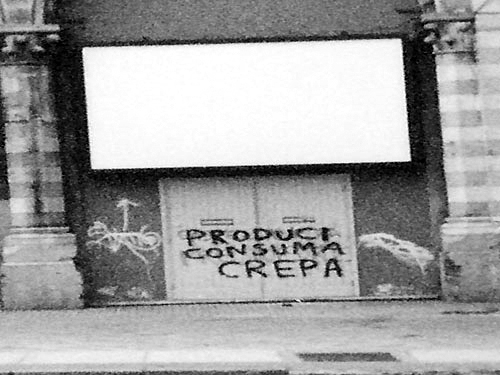 PRODUCI
CONSUMA
CREPA